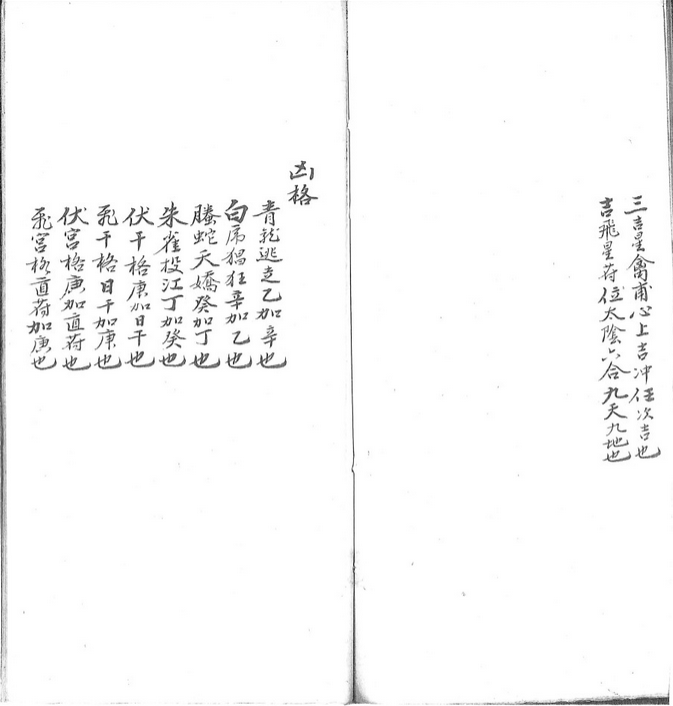 三吉星禽甫心上吉冲任次吉也
吉飛星苻位太陰六合九天九地也
凶格
青龍逃走乙加辛也
白虎猖狂辛加乙也
螣蛇夭嬌癸加丁也
朱雀投江丁加癸也
伏干格庚加日干也
飛干格日干加庚也
伏宮格庚加直苻也
飛宮格直苻加庚也